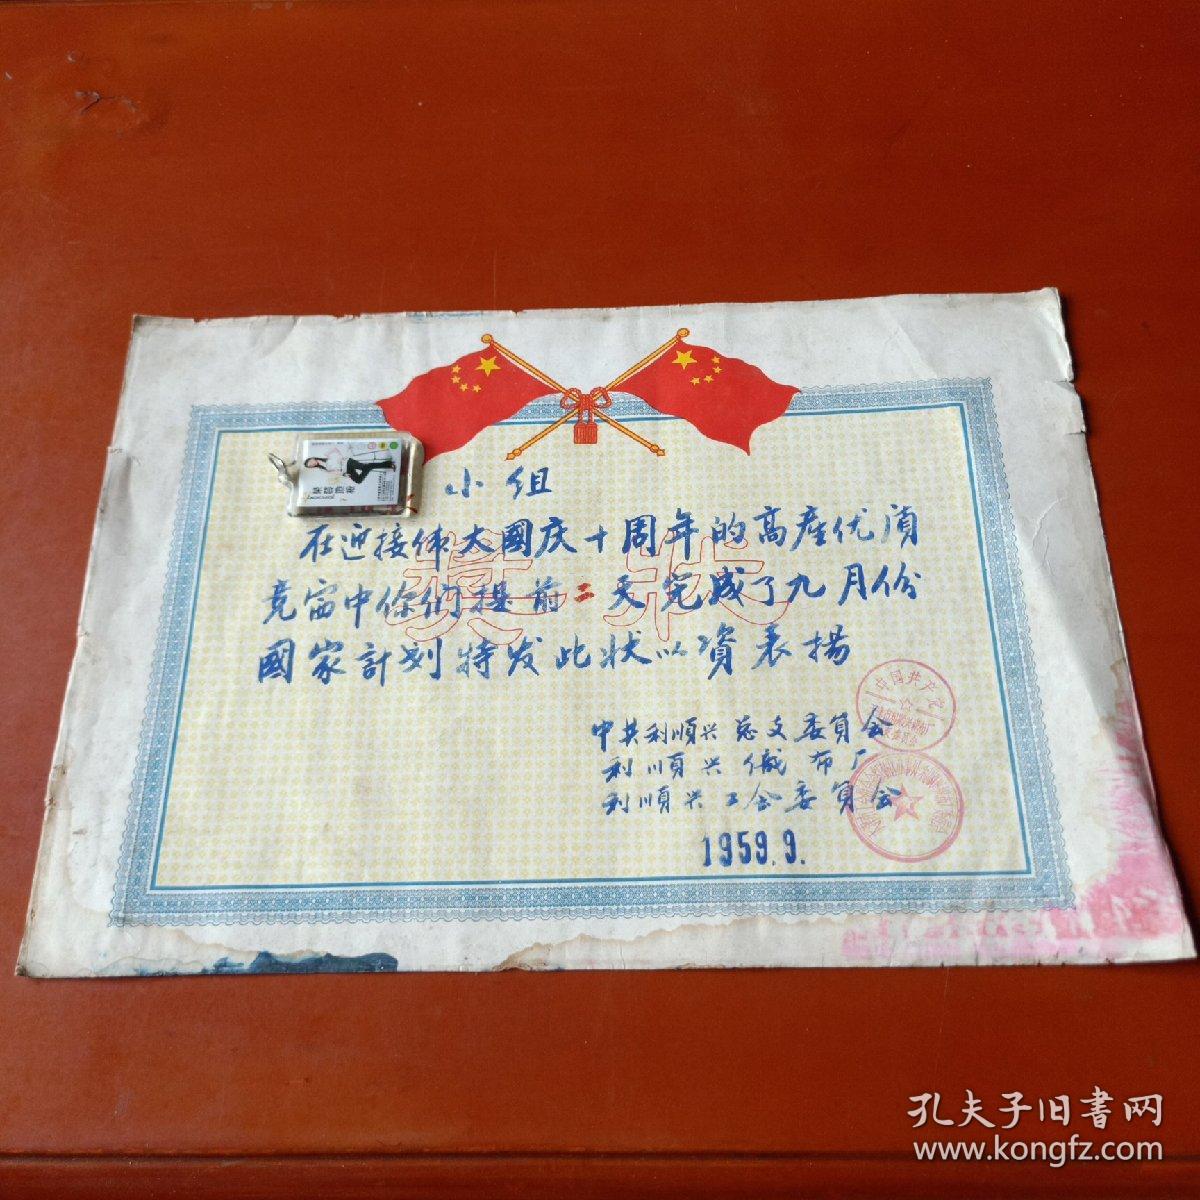 小组
奖状
在迎接伟大國庆十周年的高産优质
竞赛中你们提前二天完成了九月份
國家計划特发此状以資表揚
中国共产党
中共利順兴总支委員会
利順兴織布厂
利順兴工会委員会
1959.9.
孔夫子旧書网
www.kongfz.com